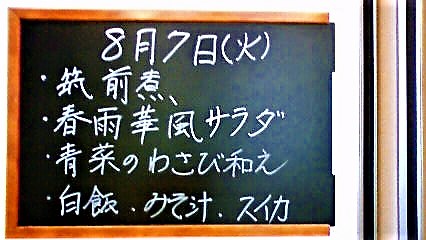 8月7日(火)
・筑前煮、
・春雨華風サラダ
・青菜のわさび和え
・白飯、みそ汁、スイカ